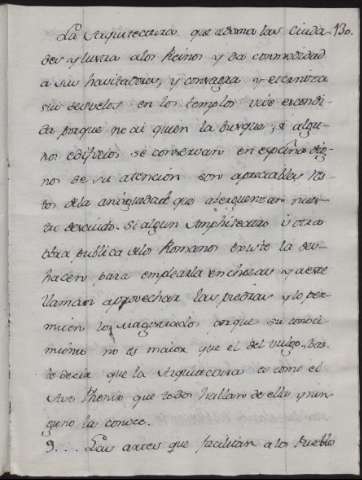 La Arquitectura que adorna las ciuda- 130.
des y lustra a los Reinos y da comodidad
a sus havitadores, y consagra y eterniza
sus desvelos en los templos vive escondi-
da porque no ai quien la busque, si algu-
nos edificios se conservan en españa dig-
nos de su atencion son apreciables res-
tos de la antiguedad que averguenzan nues-
tro descuido. Si algun Amphiteatro ú otra
obra publica de los Romanos existe la des-
hacen para emplearla en chozas y a este
llaman approvechar las piedras y lo per-
miten los Magistrados porque su conoci-
miento no es maior que el del vulgo.
te decia que la Arquitectura es como el
Ave Phenix que todos hallan de ella y nin-
guno la conoce.
9... Las artes que facilitan a los Pueblo